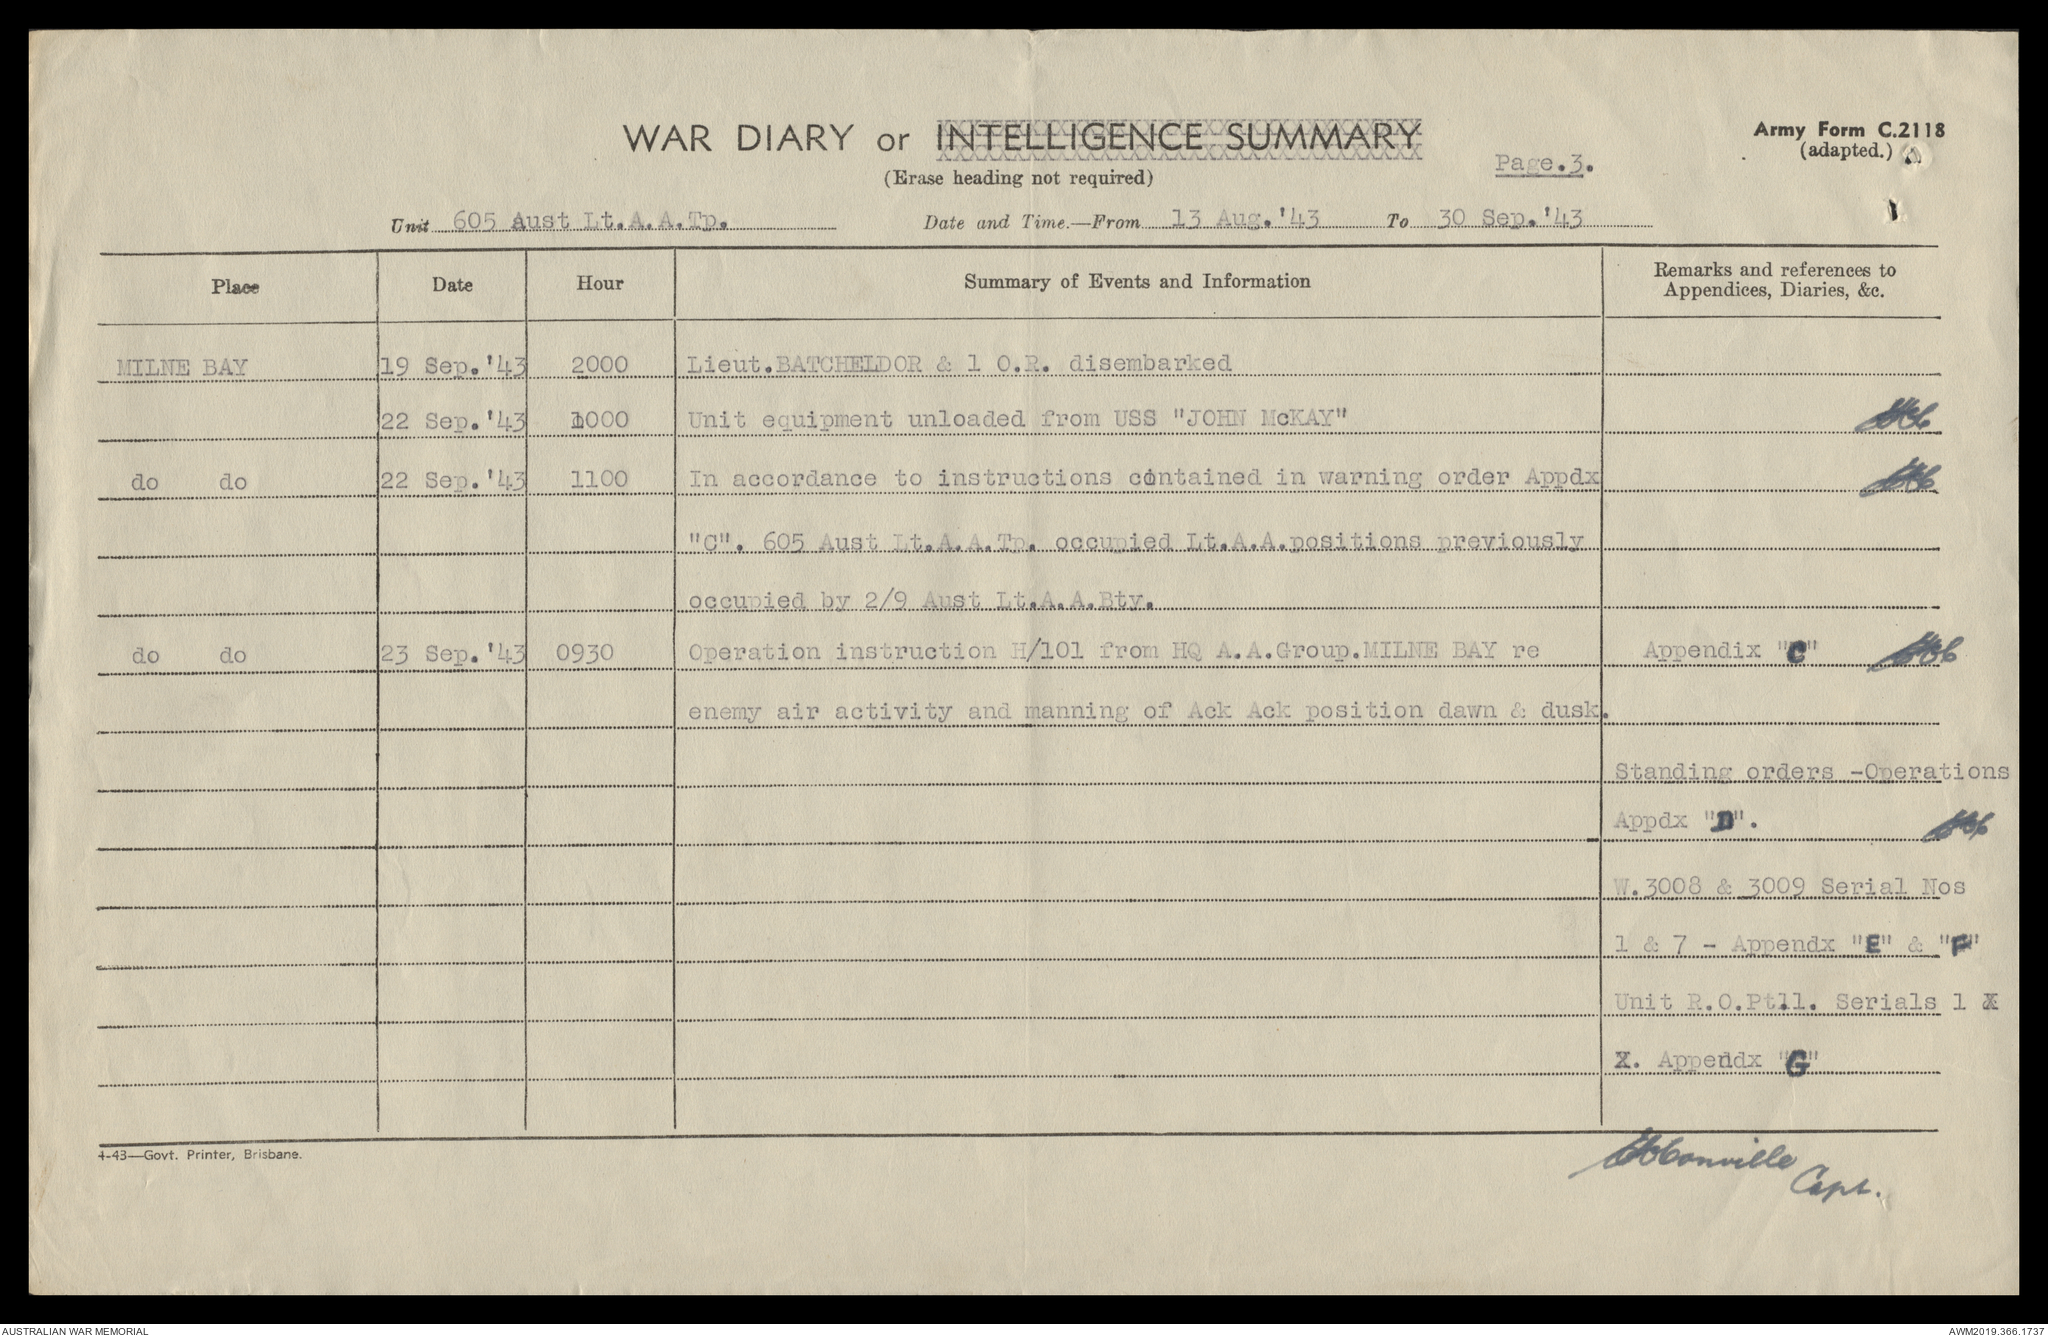 WAR DIARY or INTELLIGENCE SUMMARY
(Erase heading not required)
Page.3.
Army Form C.2118
(adapted.)
Unit 605 Aust Lt.A.A.Tp. Date and Time.—From 13 Aug.'43 To 30 Sep.'43
Place Date Hour Summary of Events and Information Remarks and references to
Appendices, Diaries, &c.
MILNE BAY 19 Sep.'43 2000 Lieut.BATCHELDOR & 1 O.R. disembarked
22 Sep.'43 1000 Unit equipment unloaded from USS "JOHN McKAY"
do do 22 Sep.'43 1100 In accordance to instructions contained in warning order Appdx
"C". 605 Aust Lt.A.A.Tp. occupied Lt.A.A.positions previously
occupied by 2/9 Aust Lt.A.A.Bty.
do do 23 Sep.'43 0930 Operation instruction H/101 from HQ A.A.Group.MILNE BAY re Appendix "C"
enemy air activity and manning of Ack Ack position dawn & dusk.
Standing orders -Operations
Appdx "D".
W.3008 & 3009 Serial Nos
1 & 7 - Appendx "E" & "F"
Unit R.O.Pt11. Serials 1 X
X. Appendx "G"
4-43—Govt. Printer, Brisbane.
Capt.
AUSTRALIAN WAR MEMORIAL AWM2019.366.1737